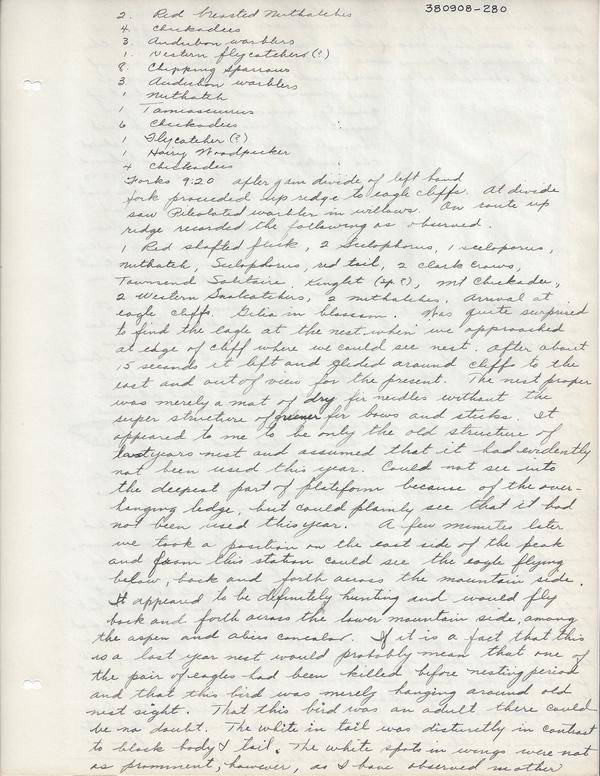 380908-280
2. Red breasted Nuthatches
4. Chickadees
3. Audubon warblers
1. Western flycatchers (?)
8. Chipping Sparrows
3. Audubon warblers
1 Nuthatch
1 Tamiasciurus
6 Chickadees
1 Flycatcher (?)
1 Hairy Woodpecker
4 Chickadees
Forks 9:20 after divide of left hand
fork proceeded up ridge to eagle cliffs. At divide
saw Pileolated warbler in willows. On route up
ridge recorded the following as observed.
1 Red shafted flick, 2 Selophorus, 1 sceloporus,
nuthatch, Selophorus, red tail, 2 Clark Crows,
Townsend Solitaire, Kinglet (sp?), Mt Chickadee,
2 Western Gnatcatchers, 2 nuthatches. Arrival at
eagle cliffs. Gilia in blossom. Was quite surprised
to find the eagle at the nest when we approached
at edge of cliff where we could see nest. After about
15 seconds it left and glided around cliffs to the
east and out of view for the present. The nest proper
was merely a mat of dry fir needles without the
super structure of greener fir bows and sticks. It
appeared to me to be only the old structure of
last years nest and assumed that it had evidently
not been used this year. Could not see into
the deepest part of plateform because of the over-
hanging ledge, but could plainly see that it had
not been used this year. A few minutes later
we took a position on the east side of the peak
and from this station could see the eagle flying
below, back and forth across the mountain side.
It appeared to be definitely hunting and would fly
back and forth across the lower mountain side, among
the aspen and abies concolor. If it is a fact that this
is a last year nest would probably mean that one of
the pair of eagles had been killed before nesting period
and that this bird was merely hanging around old
nest sight. That this bird was an adult there could
be no doubt. The white in tail was distinctly in contrast
to black body & tail. The white spots in wings were not
as prominent, however, as I have observed in other